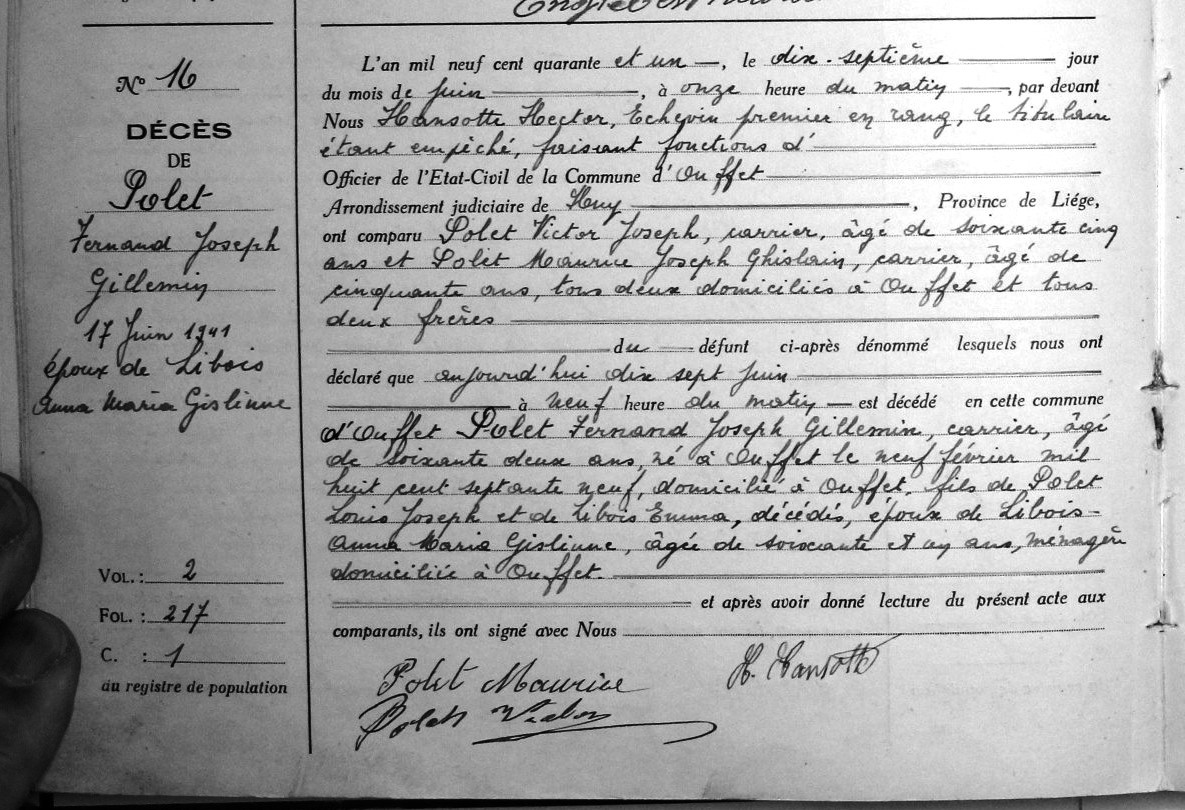 N° 16
DÉCÈS
DE
Polet
Fernand Joseph
Gillemin
17 Juin 1941
époux de Libois
Anna Maria Gislinne
VOL. : 2
FOL. : 217
C. : 1
au registre de population
L'an mil neuf cent quarante et un —, le dix-septième — jour
du mois de juin —, à onze heure du matin —, par devant
Nous Hansotte Hector, Echevin premier en rang, le titulaire
étant empêché, faisant fonctions d'
Officier de l'Etat-Civil de la Commune d'Ouffet
Arrondissement judiciaire de Huy —, Province de Liége,
ont comparu Polet Victor Joseph, carrier, âgé de soixante cinq
ans et Polet Maurice Joseph Ghislain, carrier, âgé de
cinquante ans, tous deux domiciliés à Ouffet et tous
deux frères
du — défunt ci-après dénommé lesquels nous ont
déclaré que aujourd'hui dix sept juin
à neuf heure du matin — est décédé en cette commune
d'Ouffet Polet Fernand Joseph Gillemin, carrier, âgé
de soixante deux ans, né à Ouffet le neuf février mil
huit cent septante neuf, domicilié à Ouffet, fils de Polet
Louis Joseph et de Libois Emma, décédés, époux de Libois-
Anna Maria Gislinne, âgée de soixante et un ans, ménagère
domiciliée à Ouffet.
et après avoir donné lecture du présent acte aux
comparants, ils ont signé avec Nous
Polet Maurice
H. Hansotte
Polet Victor